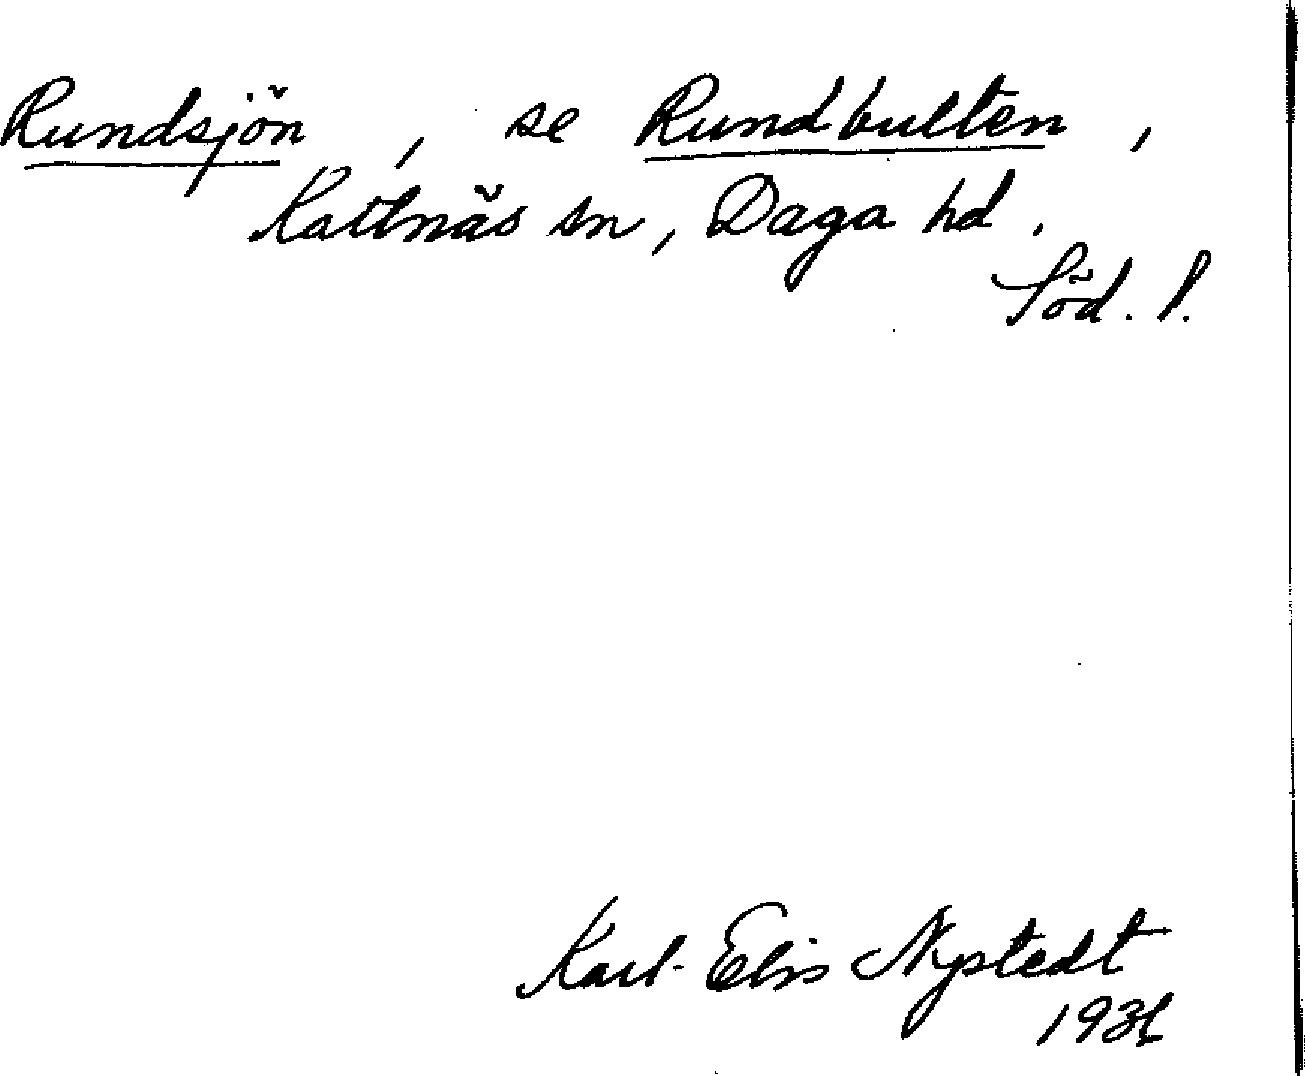 Rundsjön, se Rundbulten,
Kattnäs sn, Daga hd.
Söd. l.
Karl-Elis Nystedt
1936